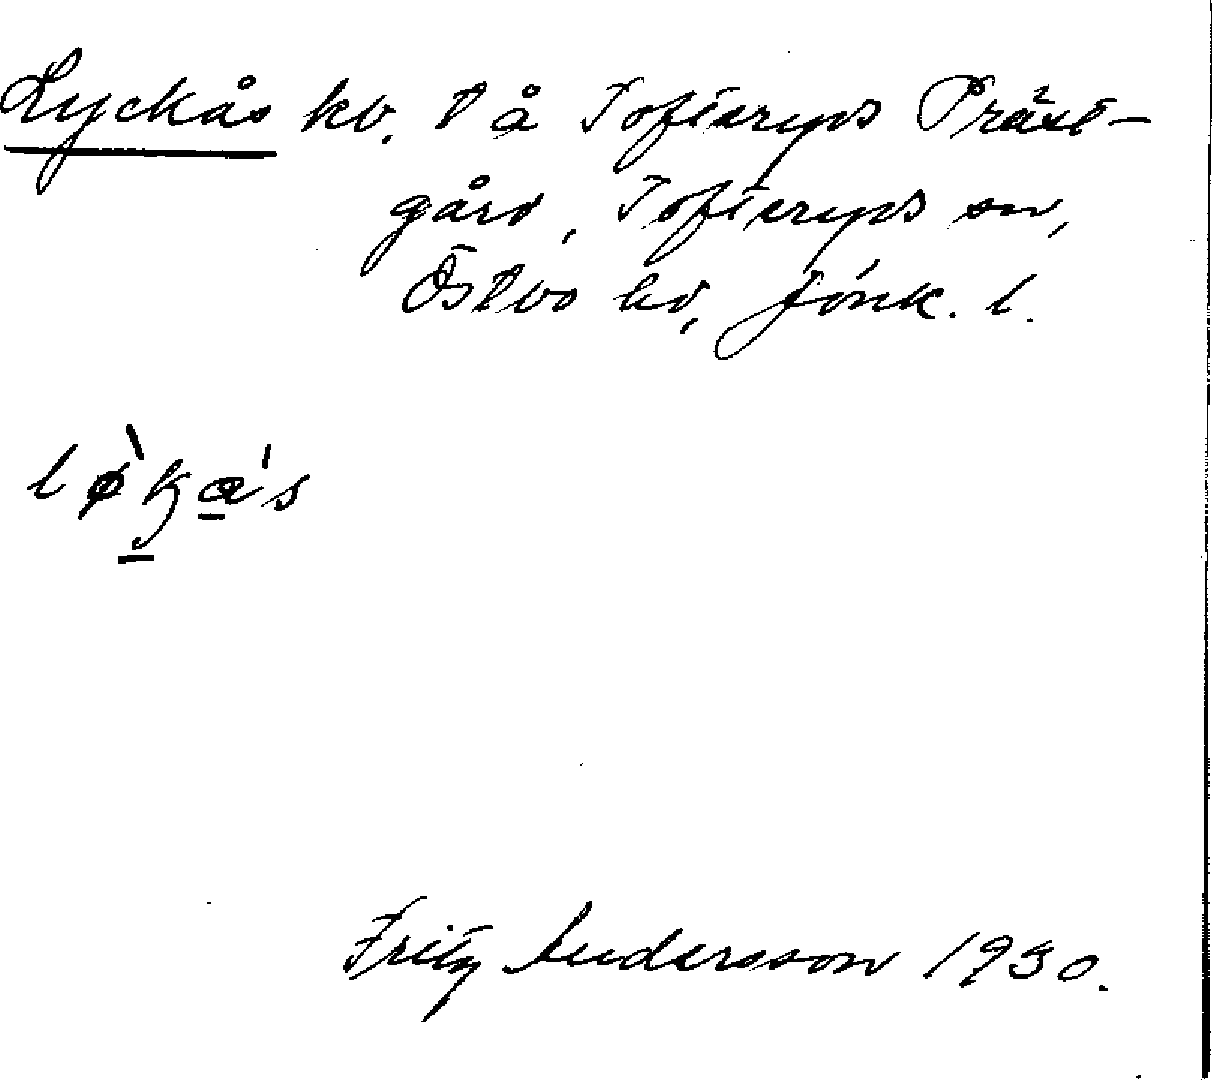 Lyckås kv. t. å Tofteryps Präst-
gård, Tofteryps sn,
Östbo hd, Jönk. l.
Fritz Andersson 1930.